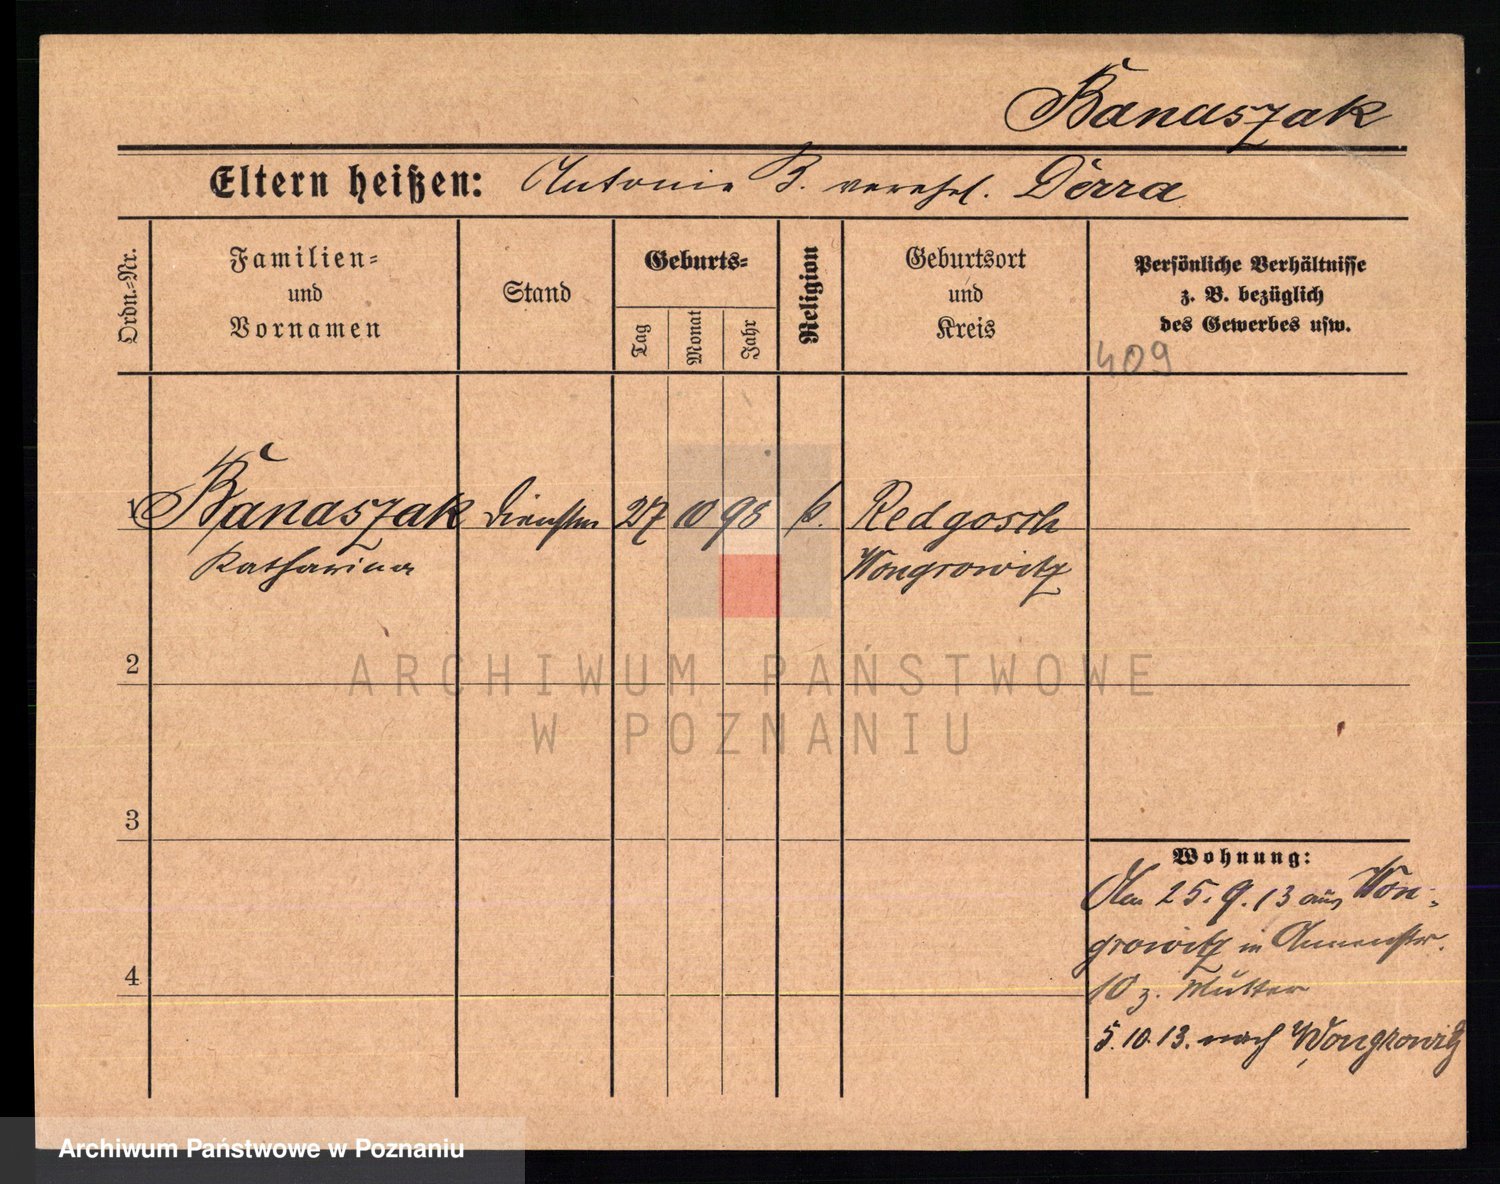 Banaszak
Eltern heißen: Antonie B. verehel. Dérra
Ordn.-Nr.
Familien-
und
Vornamen
Stand
Geburts-
Tag
Monat
Jahr
Religion
Geburtsort
und
Kreis
Persönliche Verhältnisse
z. B. bezüglich
des Gewerbes usw.
409
1 Banaszak 27 10 98 k. Redgosch
Katharina Wongrowitz
2
ARCHIWUM PAŃSTWOWE
W POZNANIU
3
Wohnung:
25.9.13 aus Won-
growitz in
10 z. Mutter
4
5.10.13. nach Wongrowitz
Archiwum Państwowe w Poznaniu